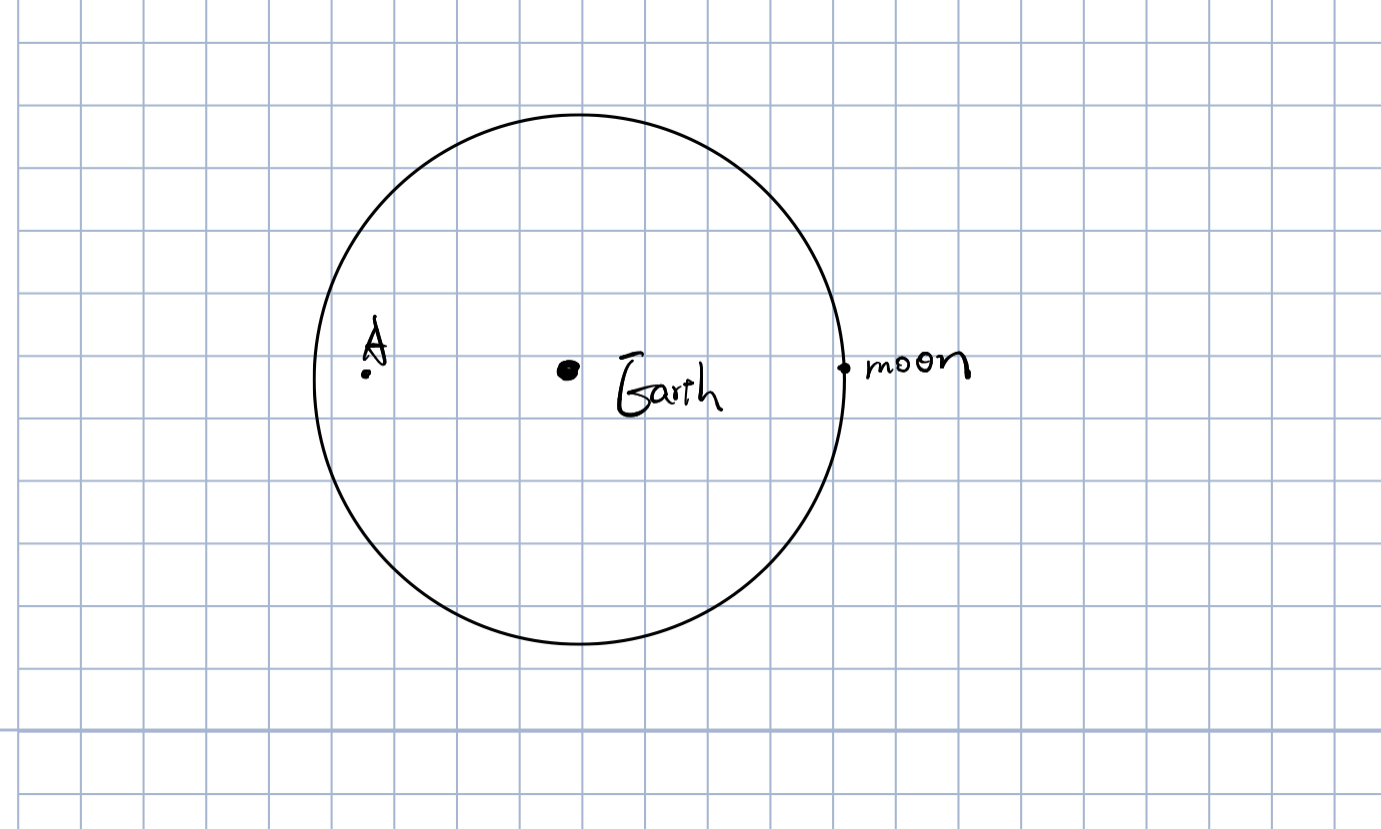 A
Earth
moon